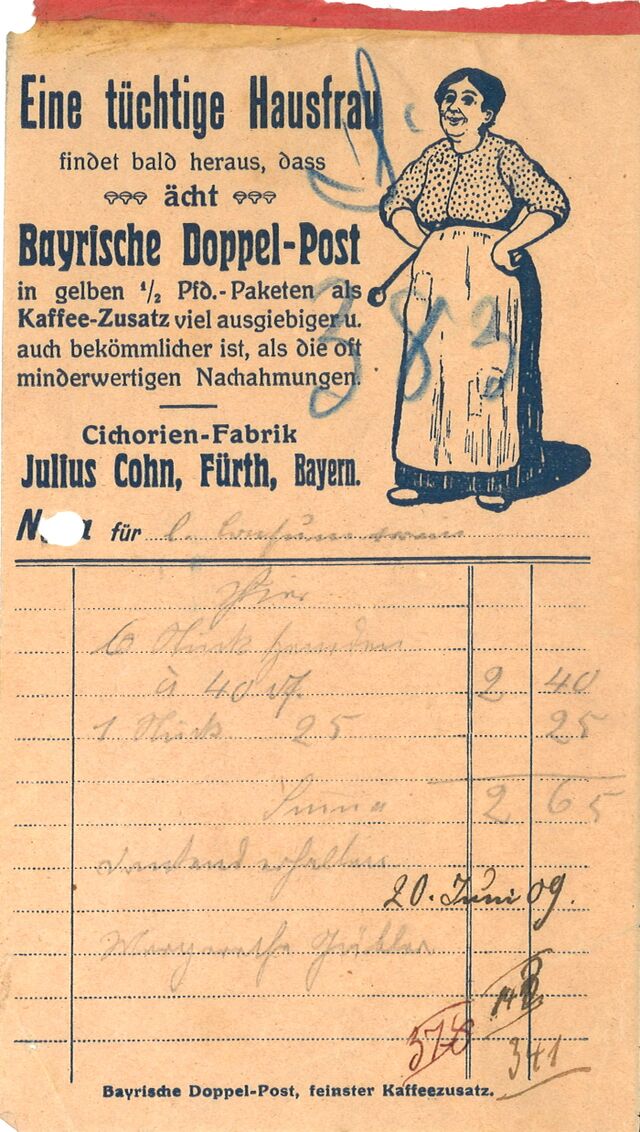 Eine tüchtige Hausfrau
findet bald heraus, dass
ächt
Bayrische Doppel-Post
in gelben ½ Pfd.-Paketen als
Kaffee-Zusatz viel ausgiebiger u.
auch bekömmlicher ist, als die oft
minderwertigen Nachahmungen.
Cichorien-Fabrik
Julius Cohn, Fürth, Bayern.
383
für
Hier
6 Stück Hemden
à 40 Pf. 2 40
1 Stück 25 25
Suma 2 65
dankend erhalten
20. Juni 09.
Margarethe
378
341
Bayrische Doppel-Post, feinster Kaffeezusatz.